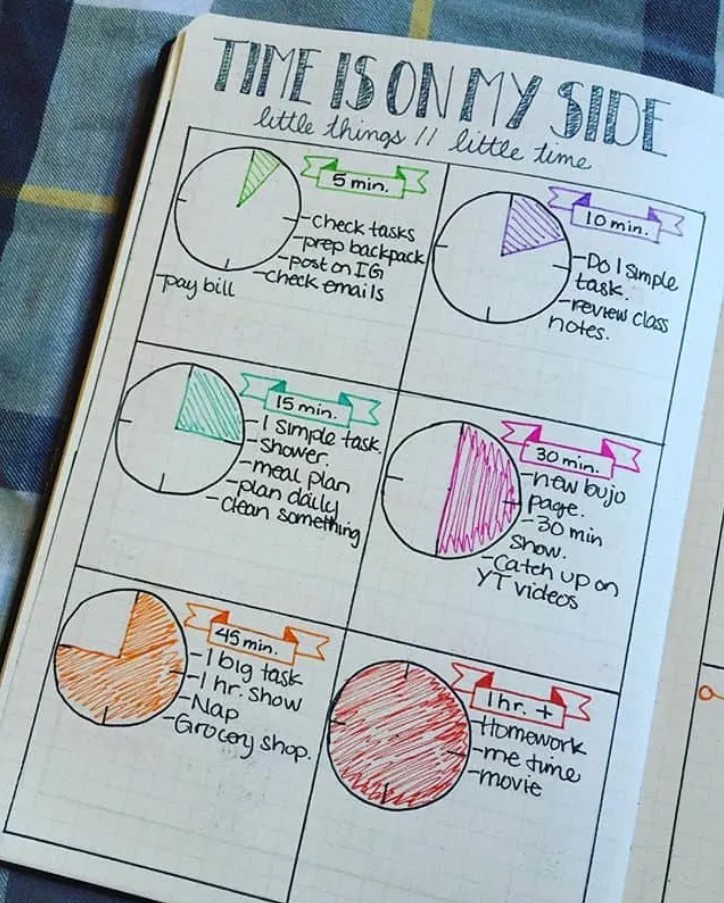 TIME IS ON MY SIDE
little things // little time
5 min.
-check tasks
-prep backpack
-post on IG
-check emails
-pay bill
10 min.
-Do 1 simple
task.
-review class
notes.
15 min.
-1 simple task.
-shower.
-meal plan
-plan daily
-clean something
30 min.
-new bujo
page.
-30 min
show.
-catch up on
YT videos
45 min.
-1 big task
-1 hr. show
-Nap
-Grocery shop.
1 hr. +
-Homework
-me time
-movie